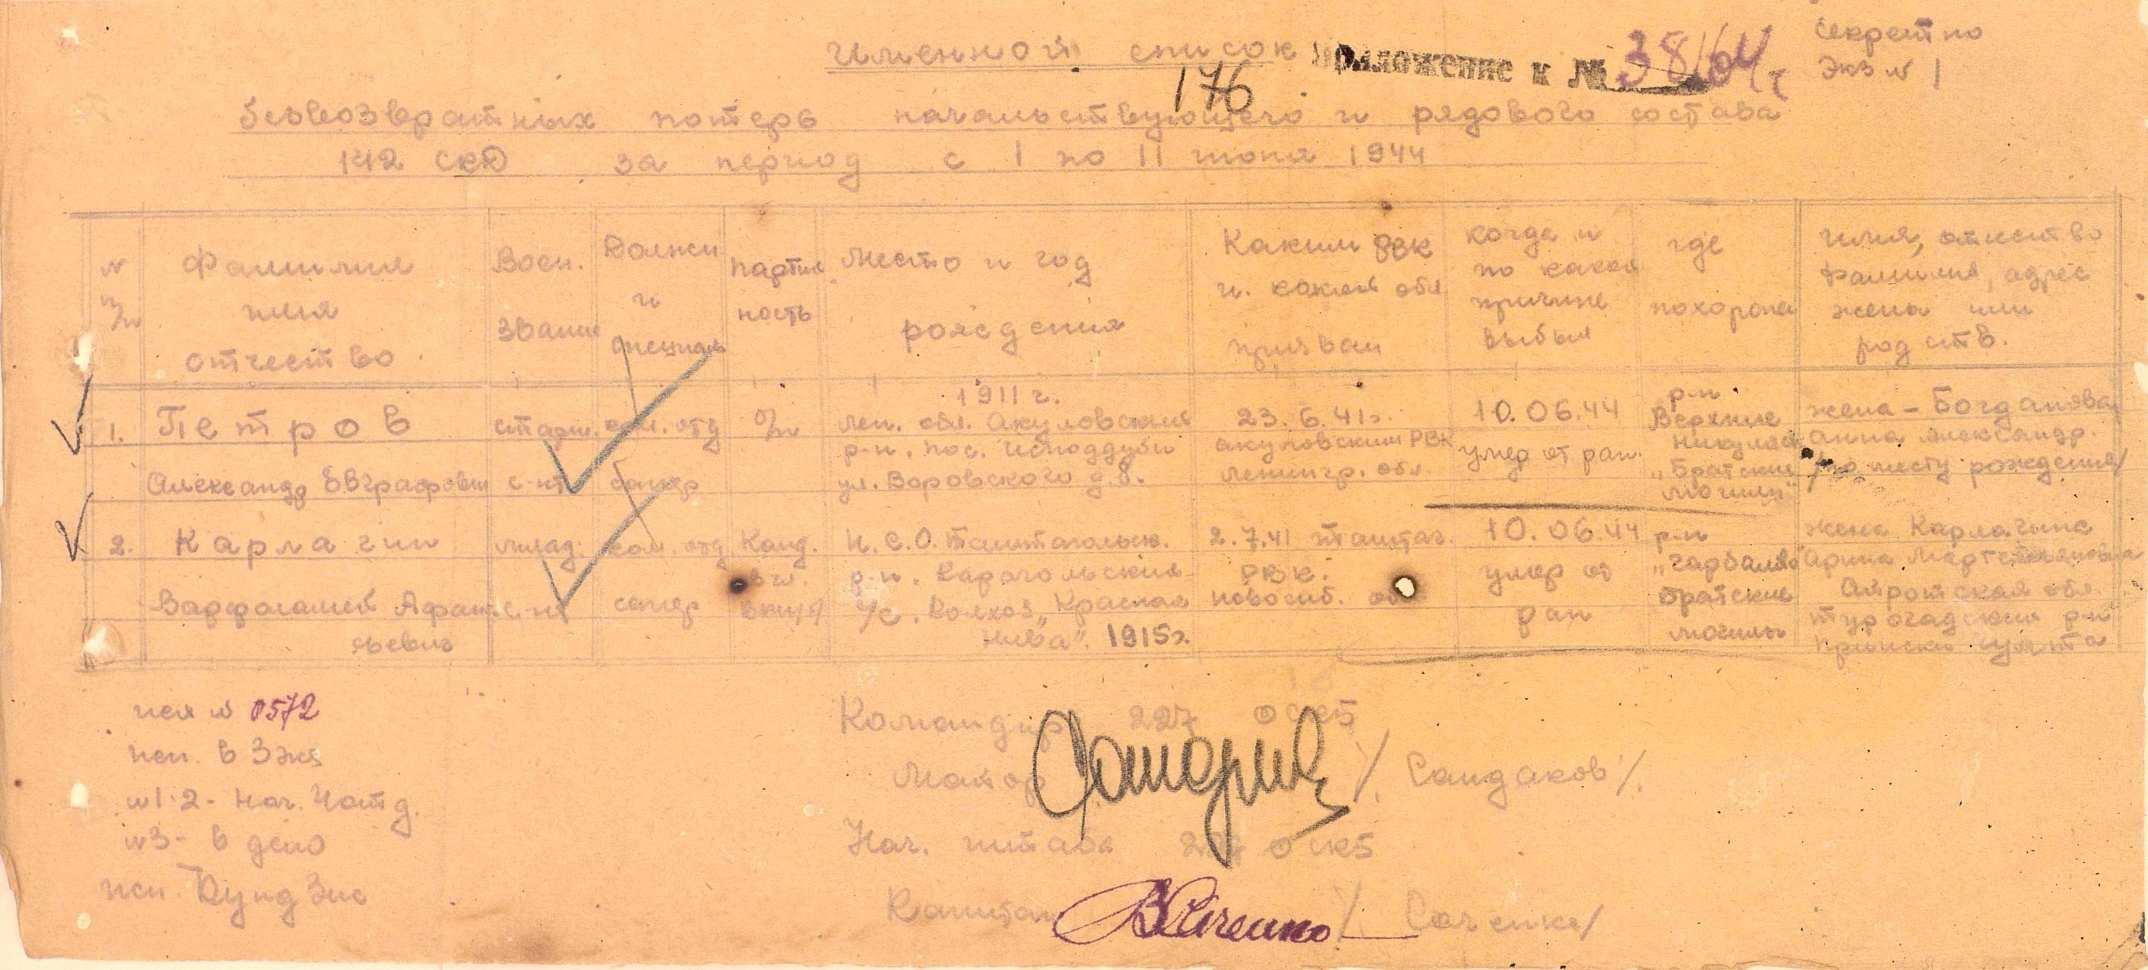 Именной список Приложение к № 38164г
Секретно
Экз № 1
176
безвозвратных потерь начальствующего и рядового состава
142 СКД за период с 1 по 11 июня 1944
N п/п
Фамилия имя отчество
Воен. звание
Должн и специаль
партий ность
Место и год рождения
Каким РВК и. какой обл призван
когда и по какой причине выбыл
где похоронен
имя, отчество фамилия, адрес жены или родств.
1.
Петров
Александр Евграфович
старш.
с-нт
ком. отд
сапер
б/п
1911 г.
Лен. обл. Акуловский
р-н. пос.
ул. Воровского д. 8.
23.6.41г.
акуловским РВК
Ленингр. обл.
10.06.44
умер от ран.
р-н
Верхние
Никуляс
"Братские
могилы"
жена – Богданова
Анна Александр.
/по месту рождения/
2.
Карлагин
Варфоламей Афана
сьевич
млад.
с-нт
ком. отд
сапер
Канд.
в чл.
ВКП/б/
Н.С.О. Таштагольск.
р-н. Карагольский
с/с. Колхоз "Красная
Нива". 1915г.
2.7.41 Таштаг.
РВК.
Новосиб. об
10.06.44
умер от
ран
р-н
"Гарболово
Братские
могилы
жена Карлагина
Арина
Айротская обл.
Турогадский р-н
прииск
исх № 0572
исп. в 3 экз
N1-2 - Нач.
N3 - в дело
исп.
Командир 227 осб
Майор / Сандаков /.
Нач. штаба 227 осб
Капитан / Саченко /